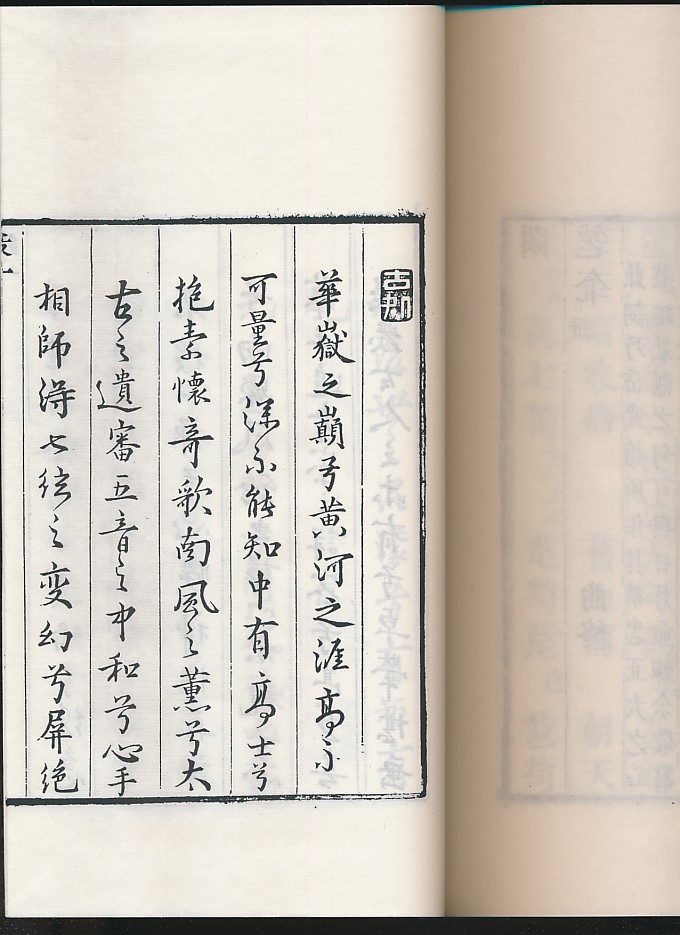 華嶽之巔兮黄河之涯高不
可量兮深不能知中有高士兮
抱素懷奇歌南風之薰兮太
古之遺審五音之中和兮心手
相師得七絃之變幻兮屏絶